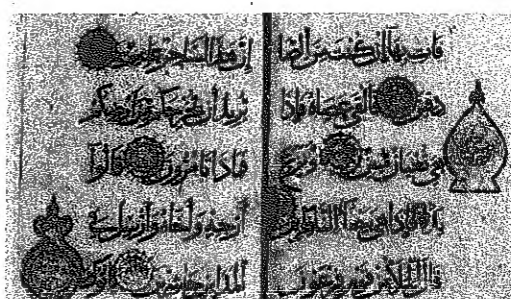 فأت بها إن كنت من الصا
دقين فألقى عصاه فإذا
هي ثعبان مبين ونزع
يده فإذا هي بيضاء للناظرين
قال الملأ من قوم فرعون
إن هذا لساحر عليم
يريد أن يخرجكم من أرضكم
فماذا تأمرون قالوا
أرجه وأخاه وأرسل في
المدائن حاشرين يأتوك